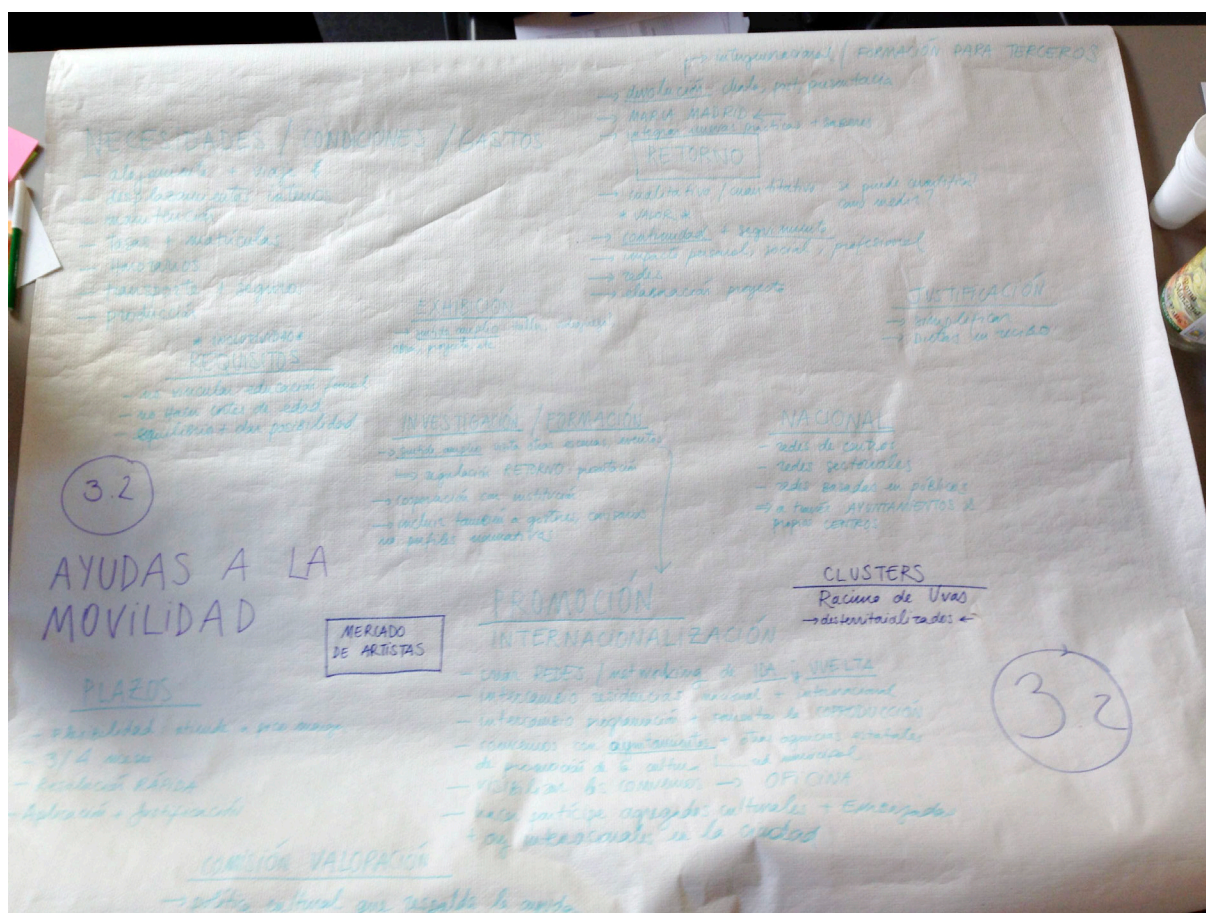 intergeneracional / FORMACIÓN PARA TERCEROS
→ devolución charla, post, presentación
→ MAPIA MADRID ←
→ integrar nuevas prácticas + saberes
RETORNO
→ cualitativo / cuantitativo se puede cuantificar
* VALOR *
→ continuidad + seguimiento
→ impacto personal, social, profesional
→ redes
→ elaboración proyecto
NECESIDADES / CONDICIONES / GASTOS
- alojamiento + viaje
- desplazamientos internos
- manutención
- tasas + matrículas
- HONORARIOS
- transporte + seguros
- producción
EXHIBICIÓN
obra, proyecto, etc
JUSTIFICACIÓN
→ simplificar
* INCLUSIVIDAD *
REQUISITOS
- no vincular educación formal
- no hacer cortes de edad
- equilibrio + dar posibilidad
INVESTIGACIÓN / FORMACIÓN
→ RETORNO
→ cooperación con institución
→ incluir también a gestores,
no perfiles normativos
NACIONAL
- redes de centros
- redes sectoriales
- redes basadas en públicos
⇒ a través AYUNTAMIENTOS &
PROPIOS CENTROS
3.2
AYUDAS A LA
MOVILIDAD
MERCADO
DE ARTISTAS
CLUSTERS
Racimo de Uvas
→ desterritorializados ←
PROMOCIÓN
INTERNACIONALIZACIÓN
- crear REDES / networking de IDA y VUELTA
- intercambio residencias nacional + internacional
- intercambio programación + COPRODUCCIÓN
- convenios con ayuntamientos + otras agencias estatales
de promoción de la cultura municipal
- VISIBILIZAR los CONVENIOS → OFICINA
- hacer partícipe agregados culturales + Embajadas
+ org internacionales en la ciudad
3.2
PLAZOS
- flexibilidad
- 3/4 meses
- Resolución RÁPIDA
- Aplicación + Justificación
COMISIÓN VALORACIÓN
→ política cultural que respalde la ayuda